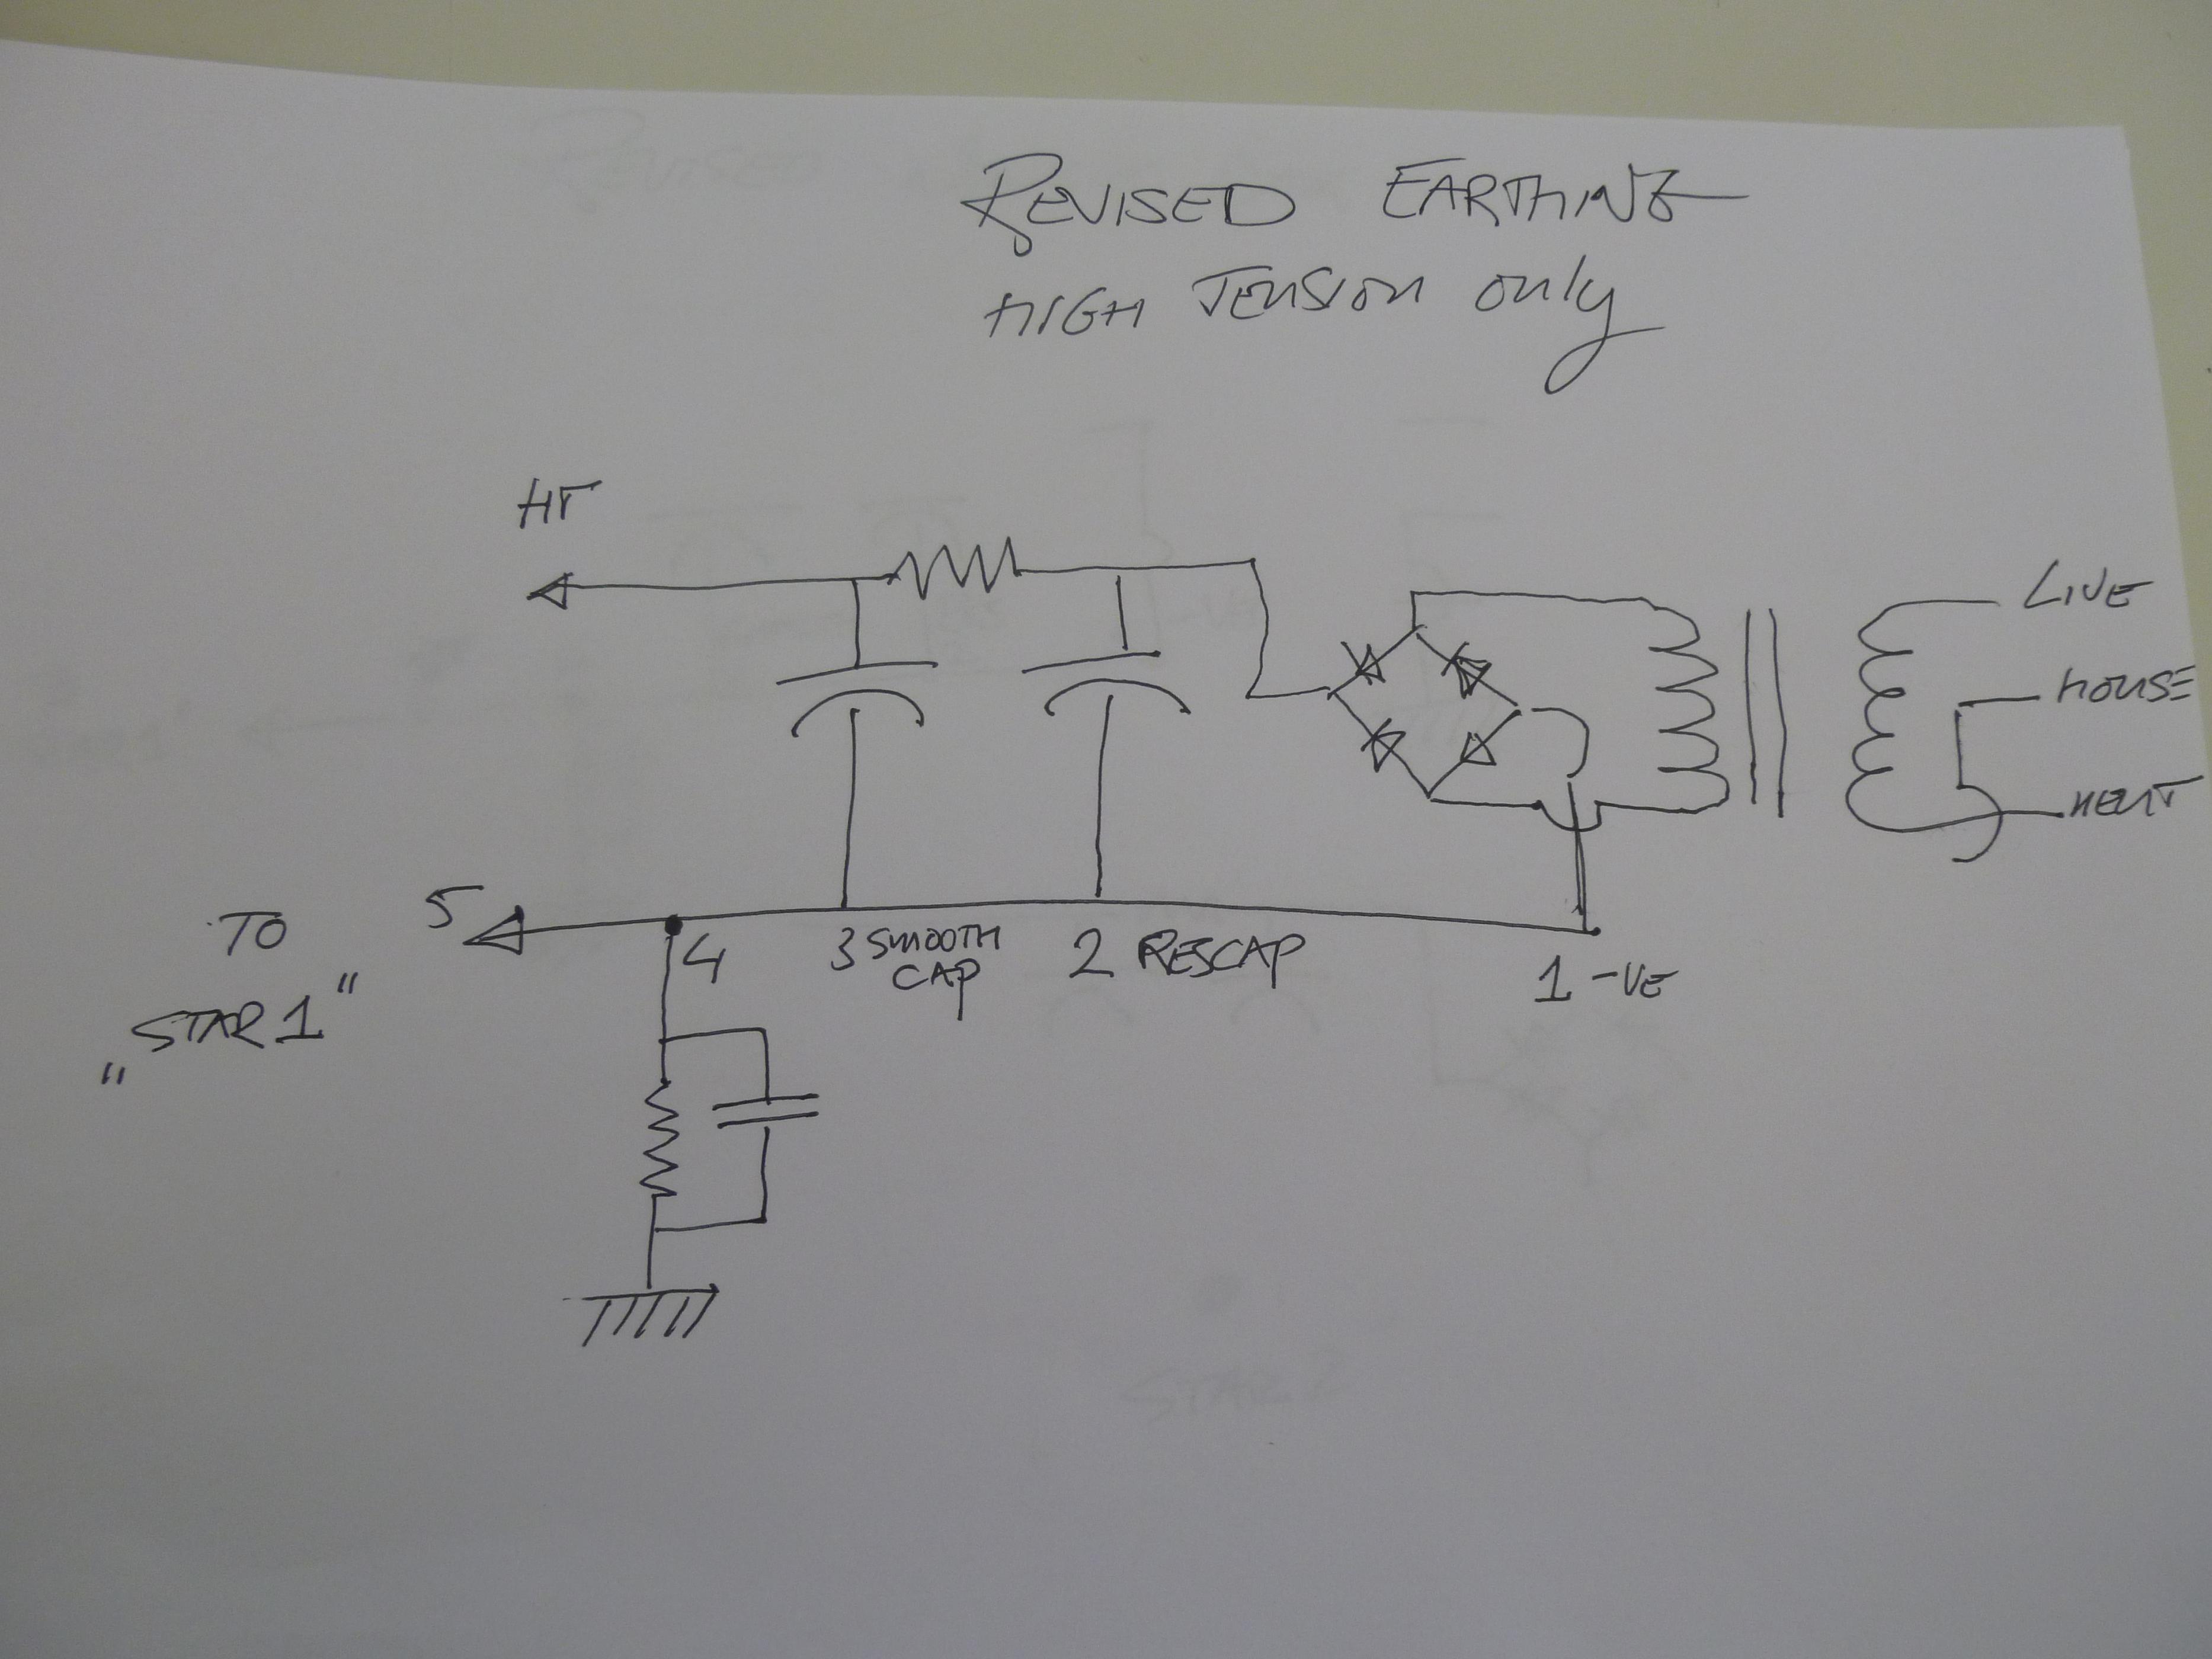 REVISED EARTHING
HIGH TENSION only
HT
LIVE
HOUSE
NEUT
5
TO
"STAR 1"
4
3 SMOOTH
CAP
2 RESCAP
1 -VE